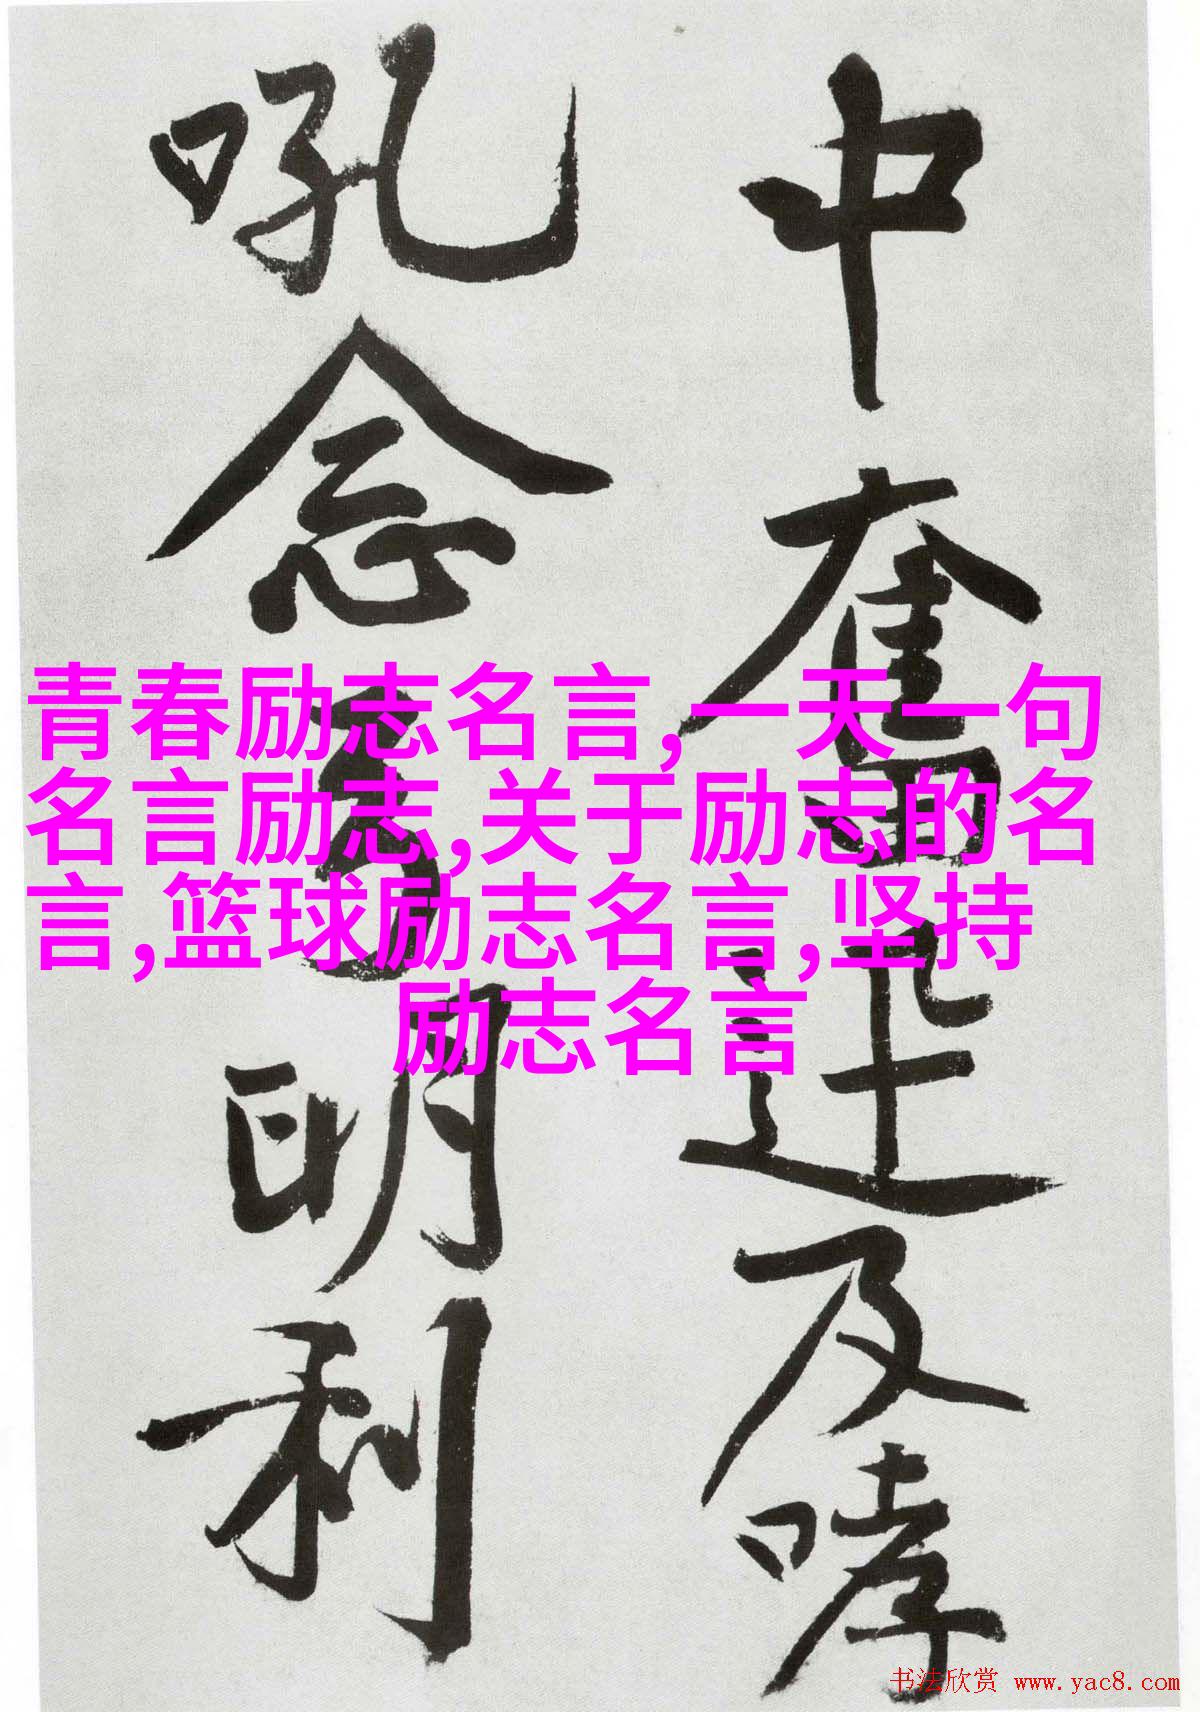 中奮迅及哮
吼念爲明利
青春励志名言,一天一句
名言励志,关于励志的名
言,篮球励志名言,坚持
励志名言
书法欣赏 www.yac8.com